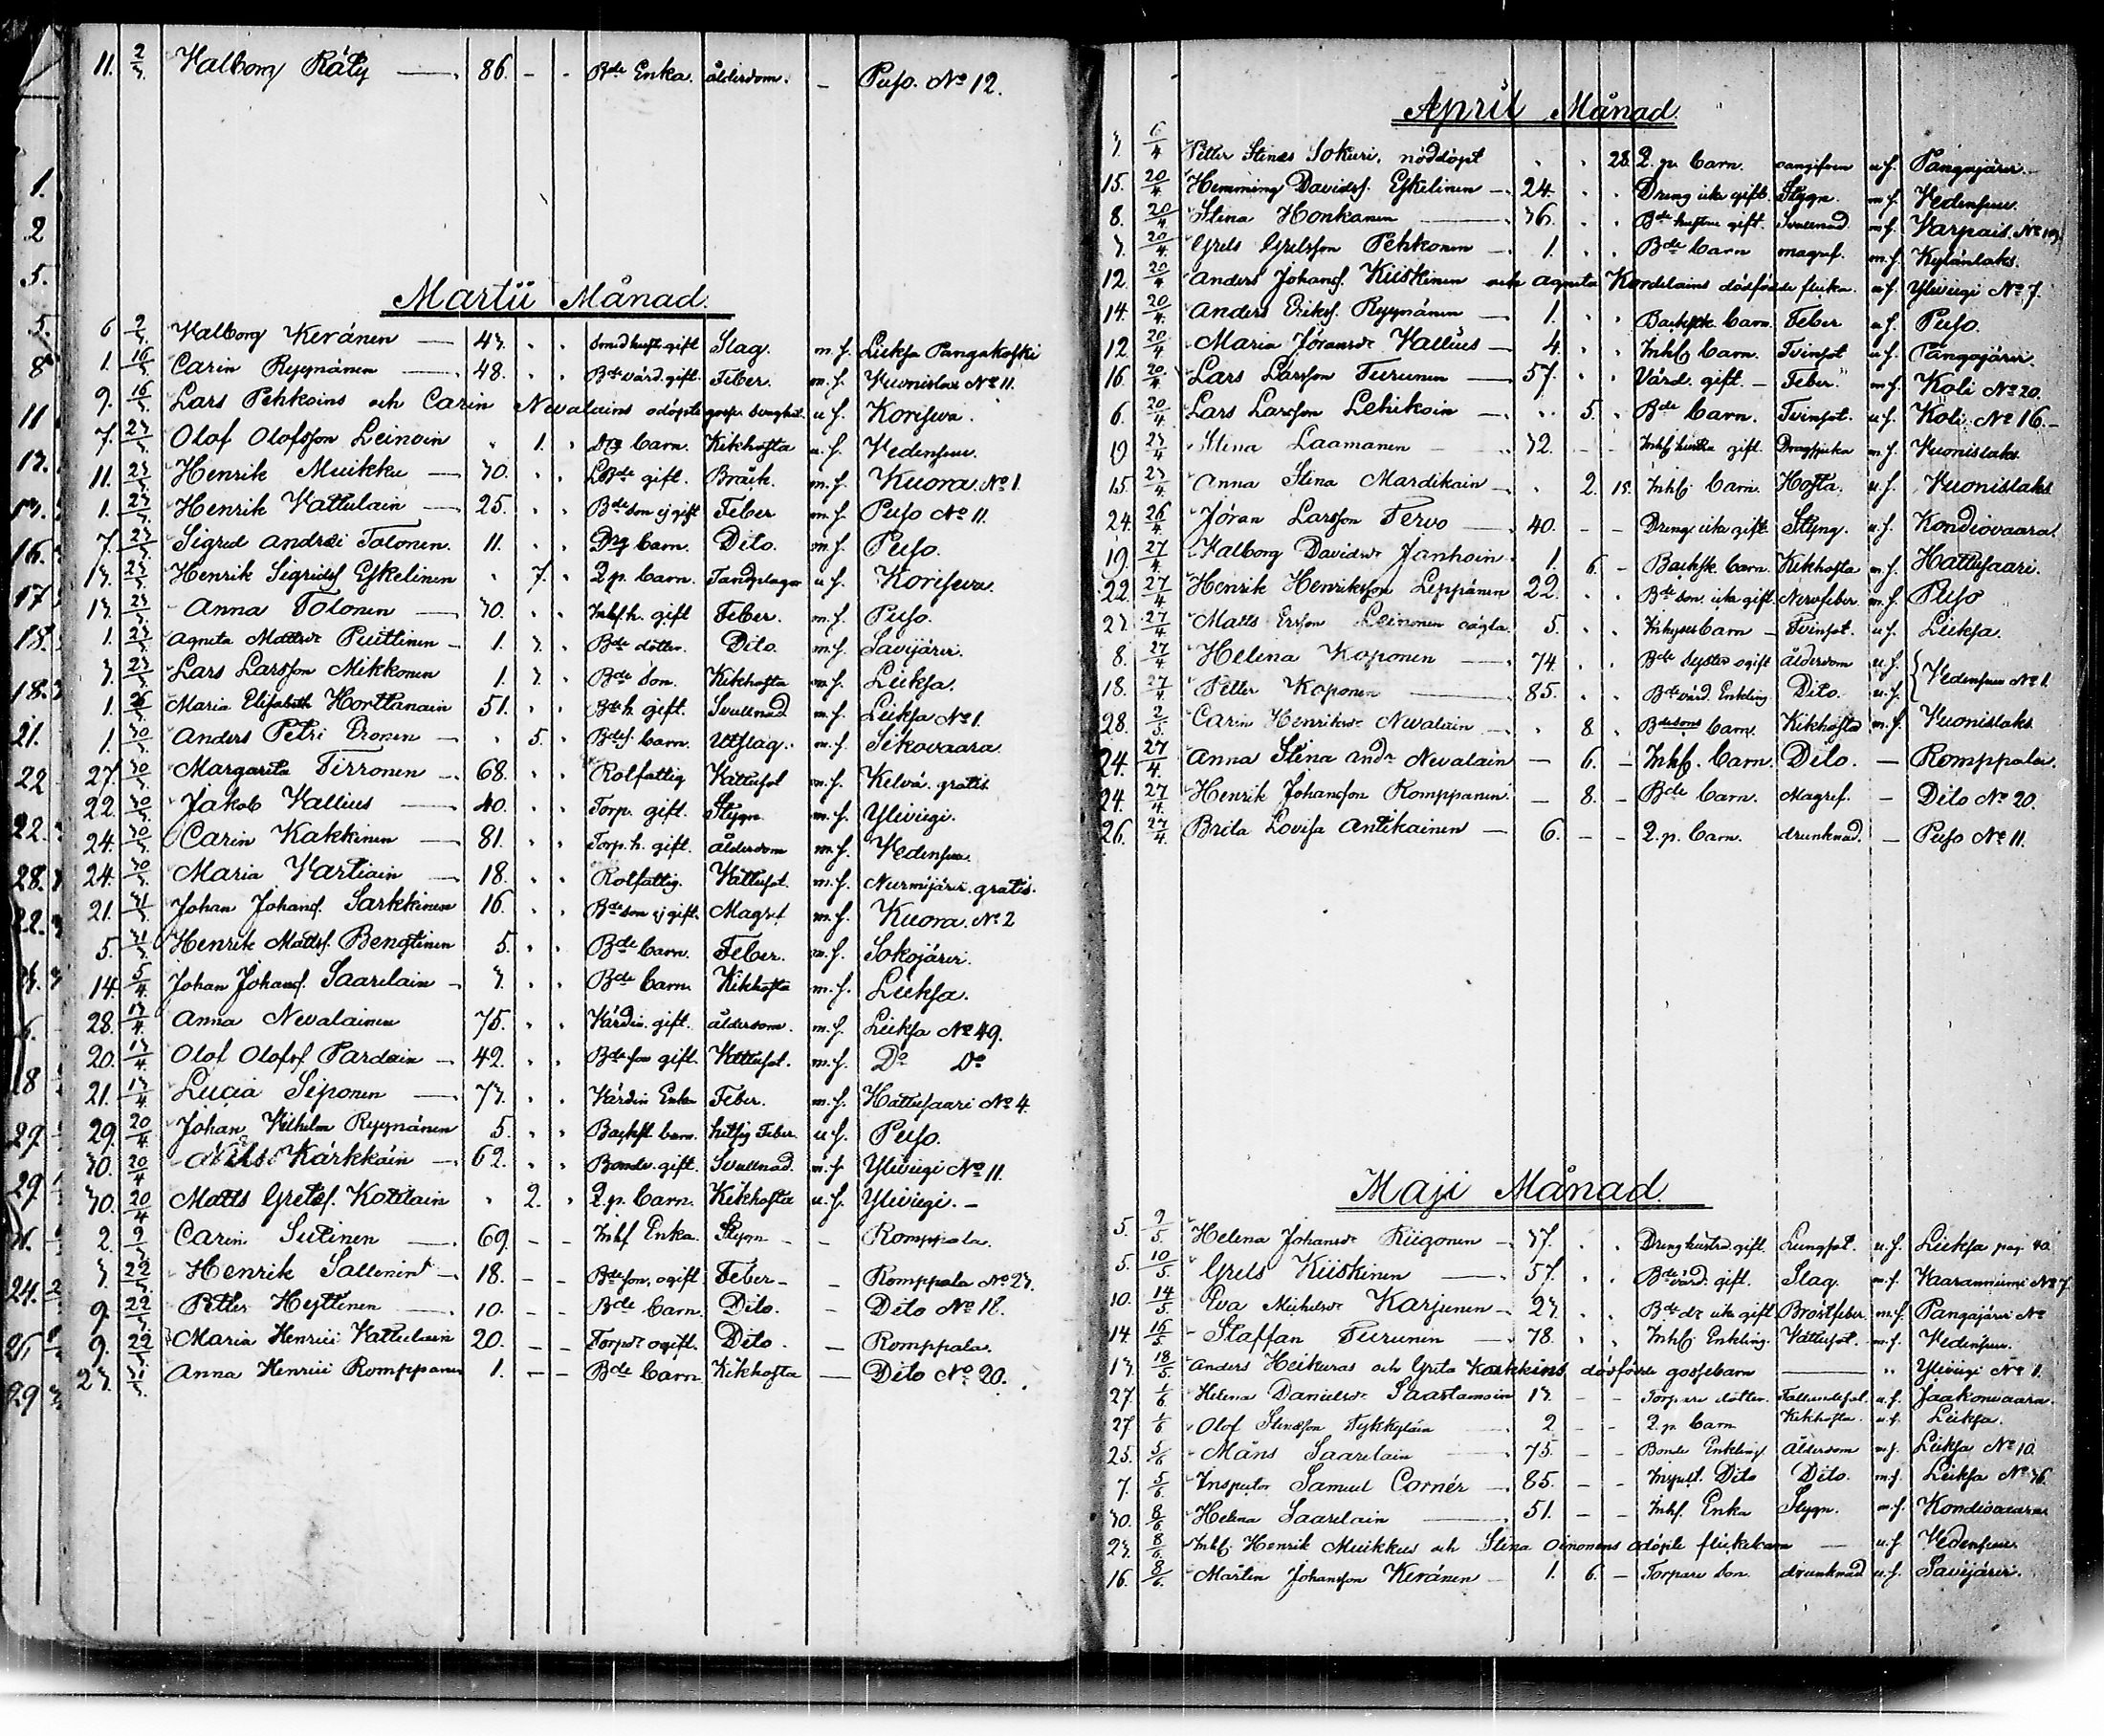 11. 2/3 Valborg Räty — 86. - - Bde Enka. ålderdom. - Puso. No 12.
Martii Månad.
6 9/3 Valborg Keränen — 43. Smed hust. gift Slag. m.f. Lieksa Pangakoski
1. 16/3 Carin Ryynänen — 48. Bde värd. gift. Feber. m.f. Vuonislax No 11.
9. 16/3 Lars Pehkoins och Carin Nevalains odöpte u.f. Koriseva.
7. 23/3 Olof Olofsson Leinoin 1. Drg barn. Kikhosta u.f. Vedensuu.
11. 23/3 Henrik Muikku — 30. LBde gift. Bråck. m.f. Kuora. No 1
1. 23/3 Henrik Vattulain — 25. Bde son ej gift Feber m.f. Puso No 11.
7. 23/3 Sigred Andrei Tolonen. 11. Drg barn. Dito. m.f. Puso.
13. 23/3 Henrik Sigridsf Eskelinen 7. 2. p. barn. Tandplågor u.f. Koriseva.
13 23/3 Anna Tolonen — 30. Inhf. h. gift Feber. m.f. Puso.
1. 23/3 Agneta Mattsdr Puittinen - 1. 3. Bde dotter. Dito. m.f. Savijärvi.
3. 23/3 Lars Larsson Mikkonen 1. 3. Bde Son. Kikhosta m.f. Lieksa.
1. 26/3 Maria Elisabeth Horttanain 51. Bde h. gift. Svullnad m.f. Lieksa No 1.
1. 30/3 Anders Petri Eronen - 5. Bdes. barn. Utslag. m.f. Sikovaara
27. 30/3 Margareta Tirronen - 68. Rotfattig Vattusot m.f. Kelvä. gratis
22. 30/3 Jakob Vallius — 40. Torp. gift. Stygn m.f. Ylivirgi.
24. 30/3 Carin Kakkinen — 81. Torp. h. gift. ålderdom m.f. Vedensuu.
24. 30/3 Maria Vartiain — 18. Rotfattig. Vattusot. m.f. Nurmijärvi. gratis.
21. 31/3 Johan Johansf. Sarkkinen 16. Bde son ej gift. Magref. m.f. Kuora. No 2
5. 31/3 Henrik Mattsf. Bengtinen 5. Bde barn. Feber. m.f. Sokojärvi.
14. 5/4 Johan Johansf. Saarelain - 3. Bde barn. Kikhosta m.f. Lieksa.
28. 13/4 Anna Nevalainen 75. Värdin. gift. ålderdom. m.f. Lieksa No 49.
20. 13/4 Olof Olofsf Pardain - 42. Bde son gift. Vattusot. m.f. Do Do
21. 13/4 Lucia Siponen — 73. Värdin Enka Feber. m.f. Hattusaari No 4.
29. 20/4 Johan Vilhelm Ryynänen 5. Backst. barn. hitsig Feber. u.f. Puso.
30. 20/4 Nils Kärkkäin — 62. Bonde. gift. Svullnad. m.f. Ylivirgi No 11.
30. 20/4 Matts Gretsf. Kotilain 2. 2. p. barn. Kikhosta u.f. Ylivirgi. -
2. 9/3 Carin Sutinen — 69. - - Inhf Enka. Stygn - - Romppala.
3. 22/3 Henrik Sallenint - 18. - - Bde son, ogift. Feber - - Romppala No 23.
9. 22/3 Petter Hejttinen — 10. - - Bde barn Dito. - Dito No 18.
9. 22/3 Maria Henrici Vattulain 20. - - Torpdr ogift. Dito. - Romppala.
23. 31/3 Anna Henrici Romppanen 1. - - Bde barn Kikhosta — Dito No 20.
April Månad.
3. 6/4 Petter Stinas Sokuri, nöddöpt 28. 2. p. barn. u.f. Pangajärvi.
15. 20/4 Hemming Davidsf. Eskelinen - 24. Dreng icke gift. Stygn. m.f. Vedensuu.
8. 20/4 Stina Honkanen — 36. Bde hustru gift. Svullnad m.f. Varpais. No 19.
3. 20/4 Grels Grelsson Pehkonen - 1. Bde barn magref. m.f. Kylänlaks.
12. 20/4 Anders Johansf. Kiiskinen och Agneta Kordelains dödfödde flicka. u.f. Ylivirgi No 7.
14. 20/4 Anders Eriksf. Ryynänen — 1. Backstk. barn. Feber u.f. Puso.
12. 20/4 Maria Jöransdr Vallius - 4. Inhf barn. Tvinsot u.f. Pangajärvi.
16. 20/4 Lars Larsson Turunen — 57. Värd. gift. - Feber. m.f. Koli No 20.
6. 20/4 Lars Larsson Lehikoin - 5. Bde barn. Tvinsot. u.f. Koli No 16. -
19 23/4 Stina Laamanen - 32. Inhf hustru gift. m.f. Vuonislaks.
15. 23/4 Anna Stina Mardikain 2. 15. Inhf barn. Hosta. u.f. Vuonislaks
24. 26/4 Jöran Larsson Tervo — 40. - - Dreng icke gift. Styng. u.f. Kondiovaara.
19. 27/4 Valborg Davidsdr Janhoin. 1. 6. - Backstk. barn. Kikhosta m.f. Hattusaari.
22. 27/4 Henrik Henriksson Leppänen 22. Bde son. icke gift. Nervfeber. m.f. Puso
23. 27/4 Matts Ersson Leinonen oägta. 5. Inhyses barn - Tvinsot. u.f. Lieksa.
8. 27/4 Helena Koponen — 74 Bde syster ogift ålderdom u.f. Vedensuu No 1.
18. 27/4 Petter Koponen — 85. Bde värd. Enkling Dito. u.f.
28. 2/5 Carin Henriksdr Nevalain - 8. Bdesons barn. Kikhosta m.f. Vuonislaks.
24. 27/4 Anna Stina Andr Nevalain — 6. - Inhf. barn. Dito. — Romppala.
24. 27/4 Henrik Johansson Romppanen. — 8. - Bde barn. Magref. - Dito No 20.
26. 27/4 Brita Lovisa Antikainen — 6. - - 2. p. barn. drunknad. — Puso No 11.
Maji Månad.
5. 9/5 Helena Johansdr Riigonen - 37. Dreng hustru. gift. Lungsot. u.f. Lieksa pag. 40
5. 10/5 Grels Kiiskinen — 57. Bde värd. gift. Slag. m.f. Vaaranniemi No 7
10. 14/5 Eva Michelsdr Karjunen - 23. Bde dr icke gift Bröstfeber. m.f. Pangajärvi No
14. 16/5 Staffan Turunen — 78. Inhf Enkling. Vattusot. m.f. Vedensuu.
13. 18/5 Anders Heikuras och Greta Karkkins dödfödde gossebarn — Ylivirgi No 1.
27. 1/6 Helena Danielsdr Saastamoin 13. - - Torpare dotter. Fallandesot. u.f. Jaakonvaara.
27. 1/6 Olof Stinasson Tykkyläin 2 - - 2. p. barn Kikhosta. u.f. Lieksa.
25. 5/6 Måns Saarelain — 75. - - Bonde Enkling Ålderdom m.f. Lieksa No 10.
7. 5/6 Inspector Samuel Cornér - 85. - - Inspect. Dito Dito. m.f. Lieksa No 36.
30. 8/6 Helena Saarelain — 51. - - Inhf. Enka Stygn. m.f. Kondiovaara
23. 8/6 Inhf. Henrik Muikkus och Stina Oinonens odöpte flickebarn — u.f. Vedensuu.
16. 8/6 Mårten Johansson Keränen - 1. 6. - Torpare son. drunknad u.f. Savijärvi.